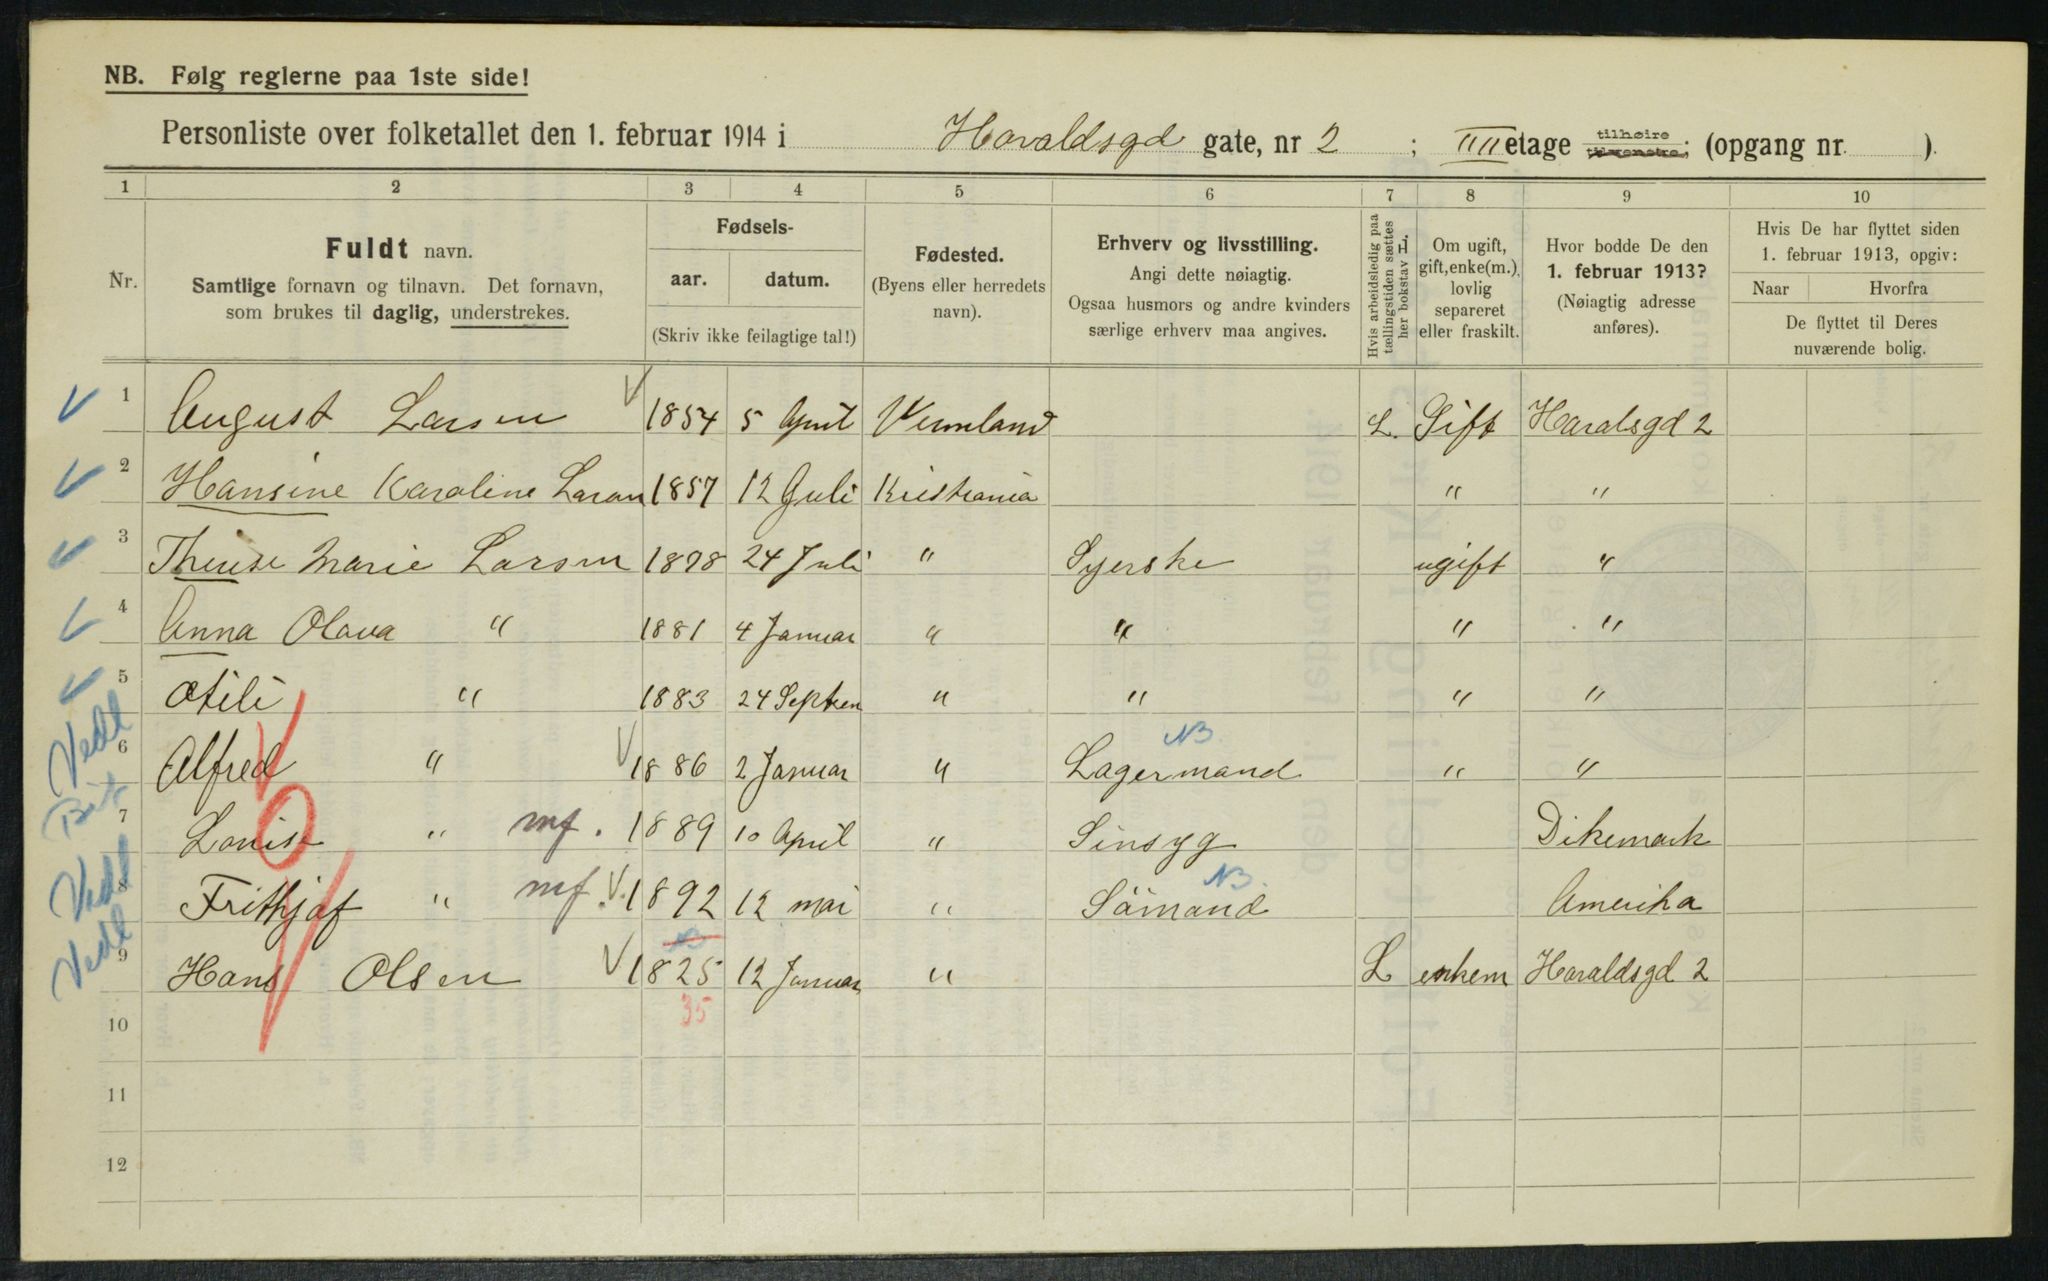 NB. Følg reglerne paa 1ste side!
Personliste over folketallet den 1. februar 1914 i Haraldsgd gate, nr 2 ; IIII etage tilhøire tilvenstre; (opgang nr. ).
1 2 3 4 5 6 7 8 9 10
Nr.
Fuldt navn.
Samtlige fornavn og tilnavn. Det fornavn,
som brukes til daglig, understrekes.
Fødsels-
aar. datum.
(Skriv ikke feilagtige tal!)
Fødested.
(Byens eller herredets
navn).
Erhverv og livsstilling.
Angi dette nøiagtig.
Ogsaa husmors og andre kvinders
særlige erhverv maa angives.
Hvis arbeidsledig paa
tællingstiden sættes
her bokstav L.
Om ugift,
gift, enke(m.),
lovlig
separeret
eller fraskilt.
Hvor bodde De den
1. februar 1913?
(Nøiagtig adresse
anføres).
Hvis De har flyttet siden
1. februar 1913, opgiv:
Naar Hvorfra
De flyttet til Deres
nuværende bolig.
1 August Larsen 1854 5 April Vermland L. Gift Haralsgd 2
2 Hansine Karoline Larsen 1857 12 Juli Kristiania " "
3 Therese Marie Larsen 1878 24 Juli " Syerske ugift "
4 Anna Olava " 1881 4 Januar " " " "
5 Otili " 1883 24 Septem " " " "
Vedl
NB.
6 Alfred " 1886 2 Januar " Lagermand " "
7 Louise " mf. 1889 10 April " Sinsyg Dikemark
Vedl
NB.
8 Frithjof " mf. 1892 12 mai " Sömand Amerika
Vedl
9 Hans Olsen 1825 12 Januar " L enkem Haraldsgd 2
35
10
11
12